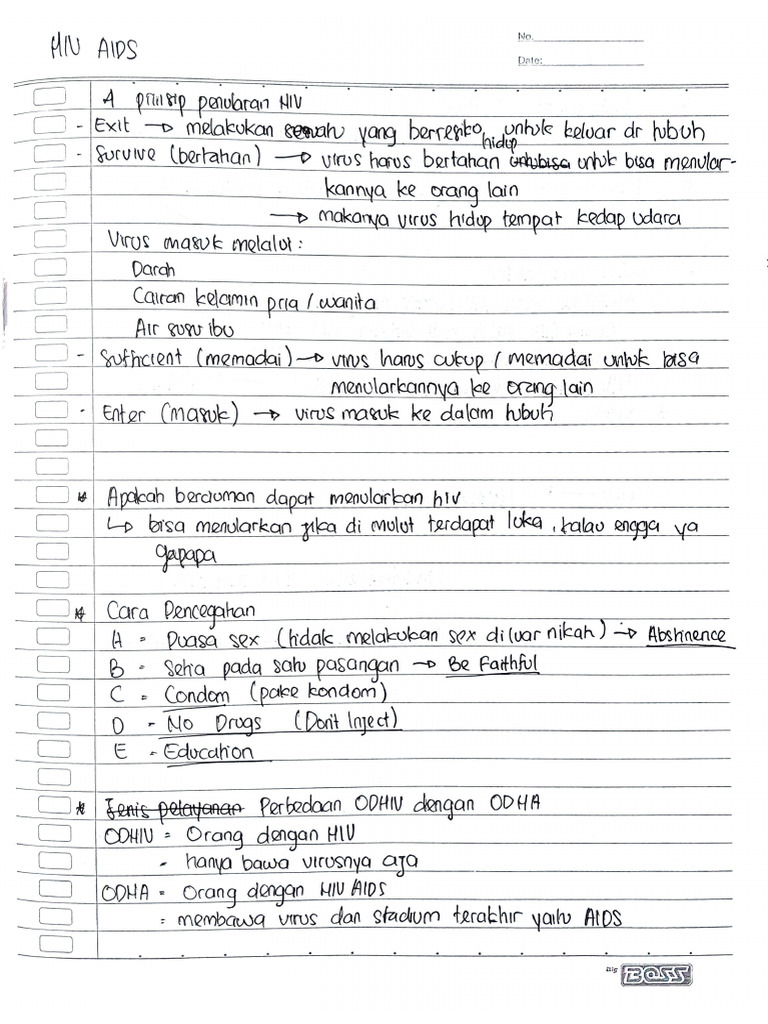 HIV AIDS
No.
Date:
4 prinsip penularan HIV
- Exit → melakukan sesuatu yang berresiko untuk keluar dr tubuh
hidup
- Survive (bertahan) → virus harus bertahan untuk bisa menular-
kannya ke orang lain
→ makanya virus hidup tempat kedap udara
Virus masuk melalui :
Darah
Cairan kelamin pria / wanita
Air susu ibu
- Sufficient (memadai) → virus harus cukup / memadai untuk bisa
menularkannya ke orang lain
- Enter (masuk) → virus masuk ke dalam tubuh
* Apakah berciuman dapat menularkan hiv
↳ bisa menularkan jika di mulut terdapat luka, kalau engga ya
gapapa
* Cara Pencegahan
A = Puasa sex (tidak melakukan sex diluar nikah) → Abstinence
B = Setia pada satu pasangan → Be Faithful
C = Condom (pake kondom)
D = No Drugs (Don't Inject)
E = Education
* Jenis pelayanan Perbedaan ODHIV dengan ODHA
ODHIV = Orang dengan HIV
- hanya bawa virusnya aja
ODHA = Orang dengan HIV AIDS
= membawa virus dan stadium terakhir yaitu AIDS
Big BOSS